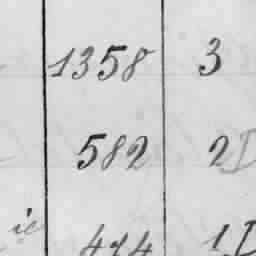 1358 3
582 2D
ie 474 1D